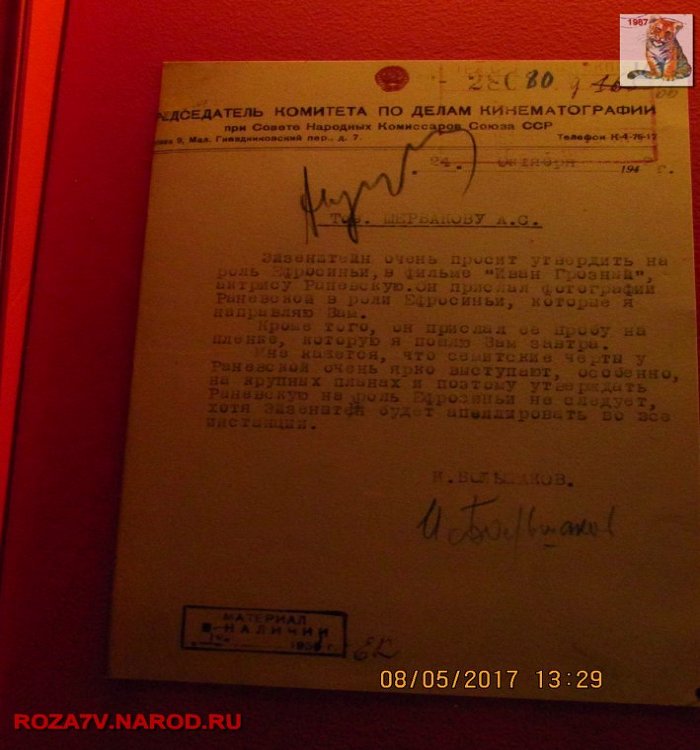 1987
2ЕС 80
ЕДСЕДАТЕЛЬ КОМИТЕТА ПО ДЕЛАМ КИНЕМАТОГРАФИИ
при Совете Народных Комиссаров Союза ССР
9, Мал. Гнездниковский пер., д. 7. Телефон К-4-76-17
24. Октября 194 г.
Тов. ЩЕРБАКОВУ А.С.
Эйзенштейн очень просит утвердить на
роль Ефросиньи, в фильме "Иван Грозный",
актрису Раневскую. Он прислал фотографии
Раневской в роли Ефросиньи, которые я
направляю Вам.
Кроме того, он прислал ее пробу на
пленке, которую я пошлю Вам завтра.
Мне кажется, что семитские черты у
Раневской очень ярко выступают, особенно,
на крупных планах и поэтому утверждать
Раневскую на роль Ефросиньи не следует,
хотя Эйзенштейн будет апеллировать во все
инстанции.
И. БОЛЬШАКОВ.
И Большаков
МАТЕРИАЛ
В НАЛИЧИИ
08/05/2017 13:29
ROZA7V.NAROD.RU